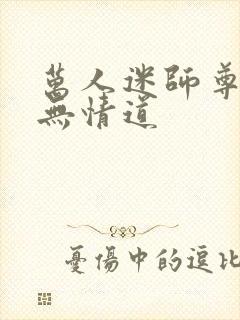 萬人迷師尊
無情道
憂傷中的逗比